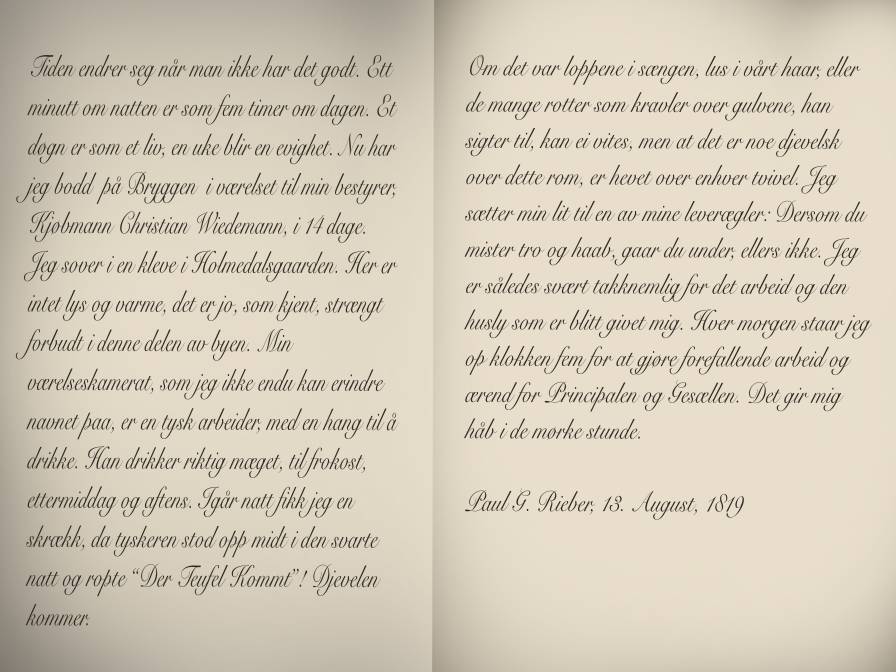 Tiden endrer seg når man ikke har det godt. Ett
minutt om natten er som fem timer om dagen. Et
døgn er som et liv, en uke blir en evighet. Nu har
jeg bodd på Bryggen i værelset til min bestyrer,
Kjøbmann Christian Wiedemann, i 14 dage.
Jeg sover i en kleve i Holmedalsgaarden. Her er
intet lys og varme, det er jo, som kjent, strængt
forbudt i denne delen av byen. Min
værelseskamerat, som jeg ikke endu kan erindre
navnet paa, er en tysk arbeider, med en hang til å
drikke. Han drikker riktig mæget, til frokost,
ettermiddag og aftens. Igår natt fikk jeg en
skrækk, da tyskeren stod opp midt i den svarte
natt og ropte “Der Teufel Kommt”! Djevelen
kommer.
Om det var loppene i sængen, lus i vårt haar, eller
de mange rotter som kravler over gulvene, han
sigter til, kan ei vites, men at det er noe djevelsk
over dette rom, er hevet over enhver tvivel. Jeg
sætter min lit til en av mine leverægler: Dersom du
mister tro og haab, gaar du under, ellers ikke. Jeg
er således svært takknemlig for det arbeid og den
husly som er blitt givet mig. Hver morgen staar jeg
op klokken fem for at gjøre forefallende arbeid og
ærend for Principalen og Gesællen. Det gir mig
håb i de mørke stunde.
Paul G. Rieber, 13. August, 1819